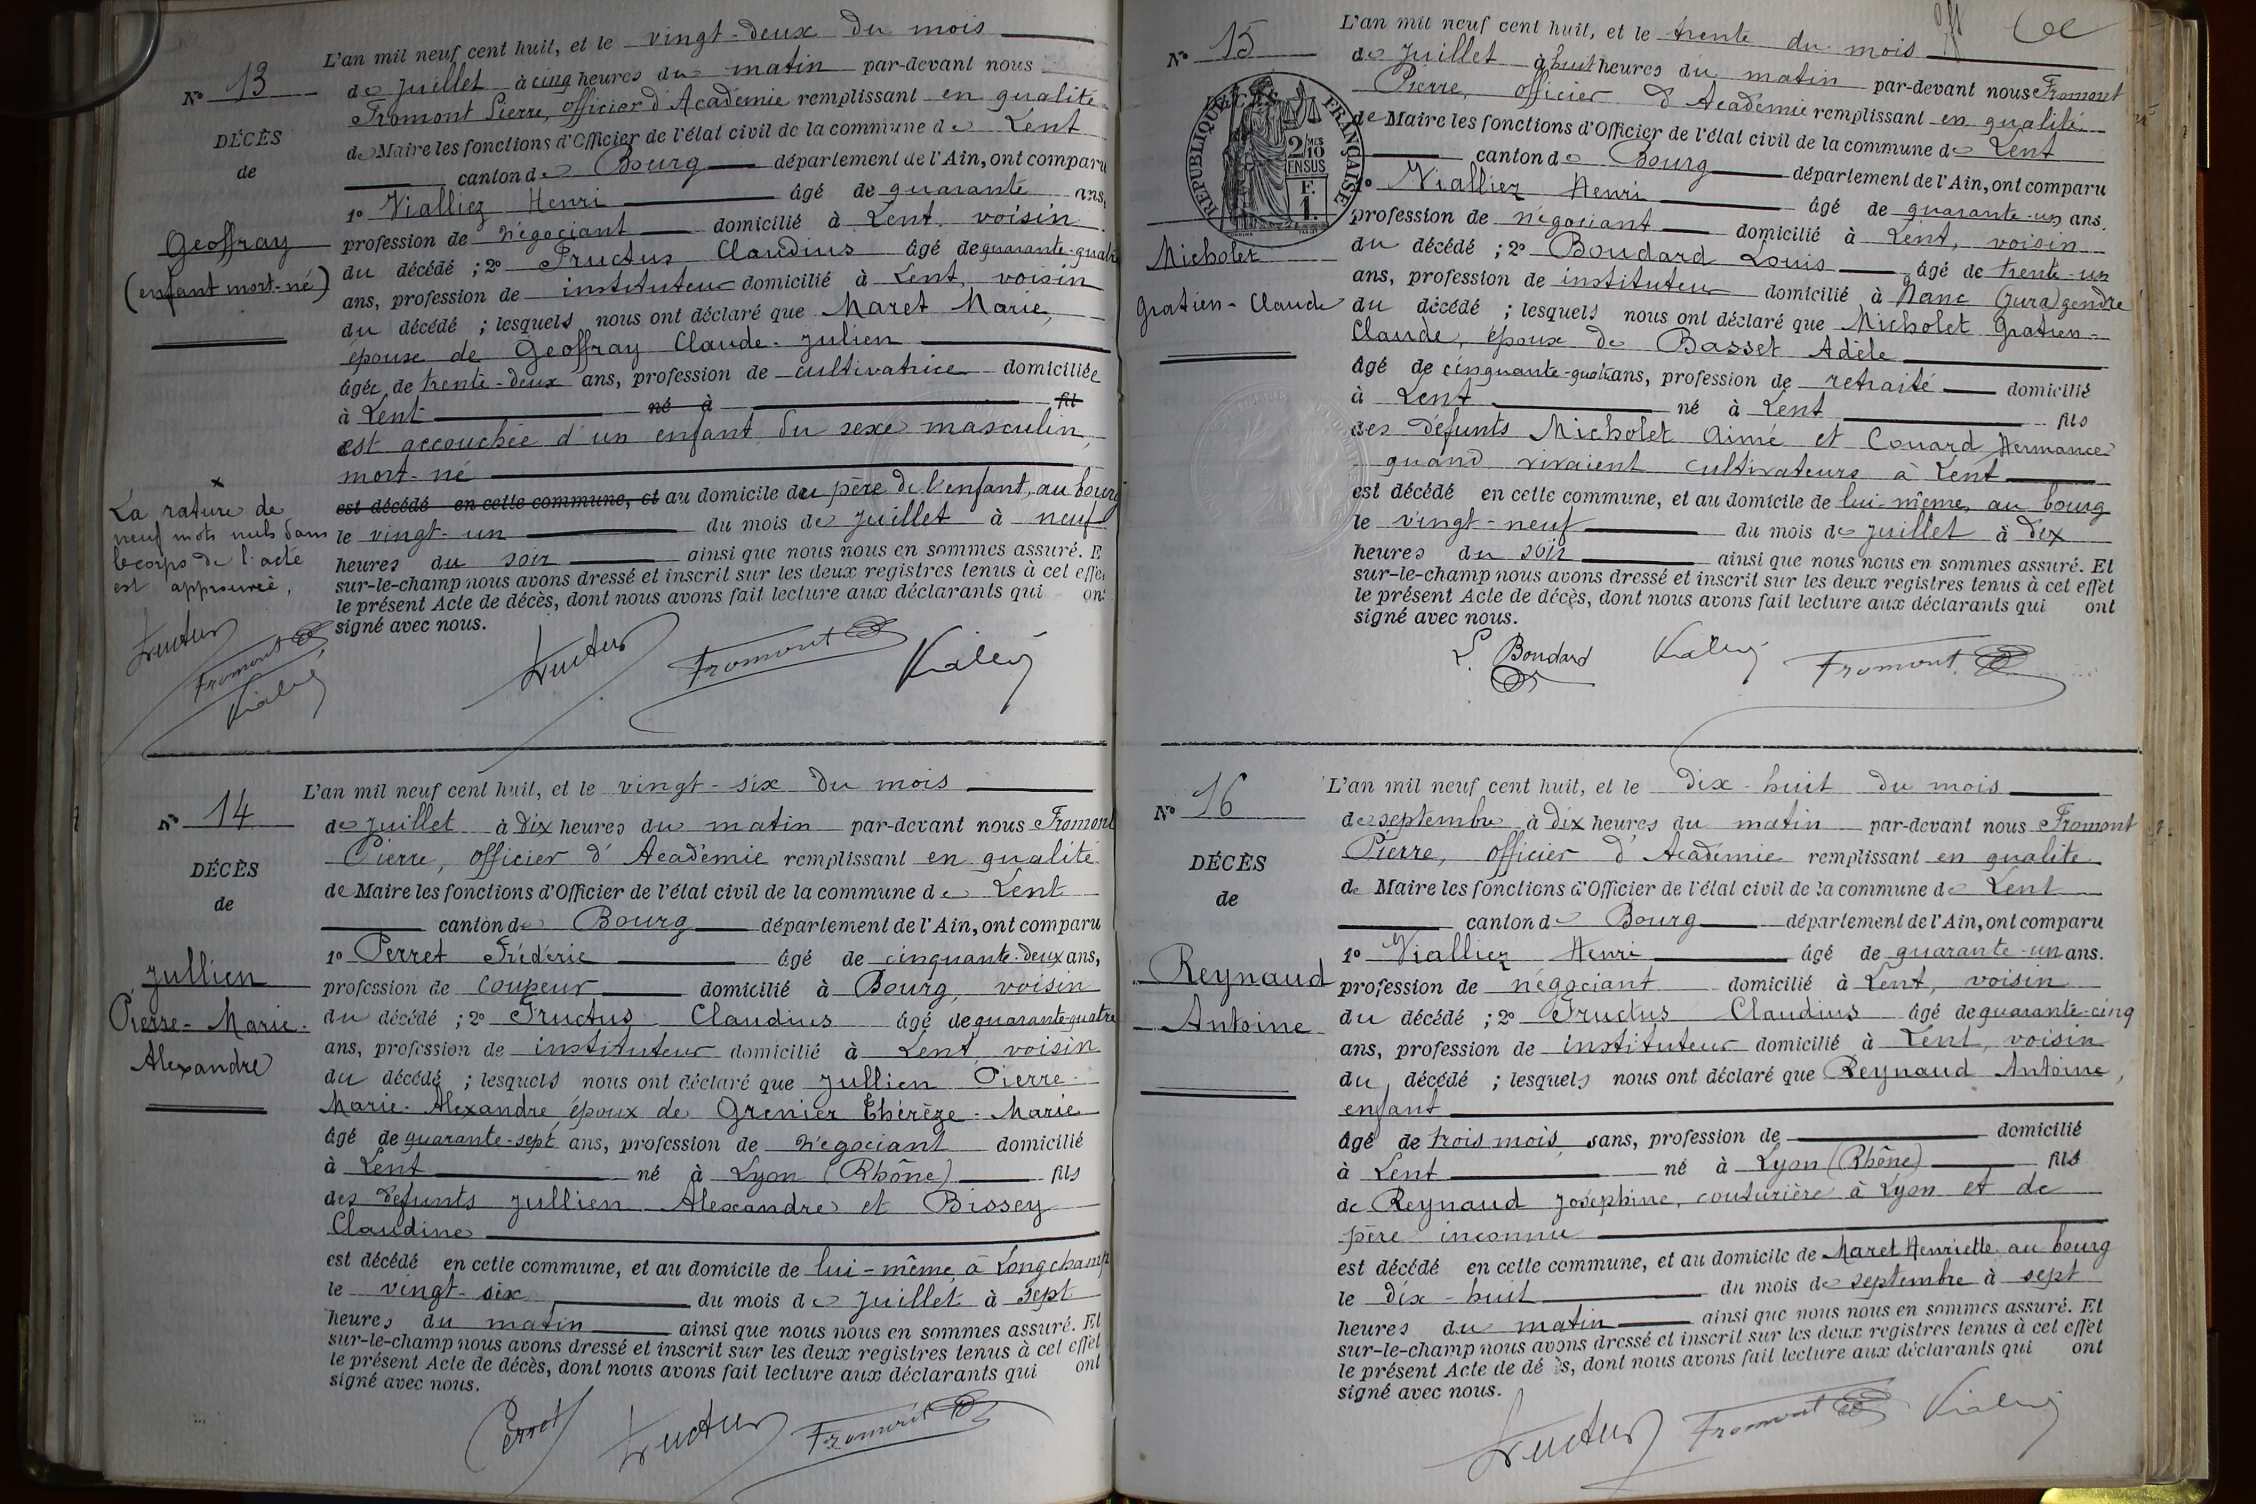 L'an mil neuf cent huit, et le vingt-deux du mois
N° 13
de Juillet à cinq heures du matin par-devant nous
Fromont Pierre, officier d'Académie remplissant en qualité
DÉCÈS
de Maire les fonctions d'Officier de l'état civil de la commune de Lent
de
canton de Bourg département de l'Ain, ont comparu
1° Vialliez Henri âgé de quarante ans,
Geoffray
profession de négociant domicilié à Lent, voisin
(enfant mort-né)
du décédé ; 2° Fructus Claudius âgé de quarante-quatre
ans, profession de instituteur domicilié à Lent, voisin
du décédé ; lesquels nous ont déclaré que Maret Marie,
épouse de Geoffray Claude-Julien
âgée de trente-deux ans, profession de cultivatrice domiciliée
à Lent né à fil
est accouchée d'un enfant du sexe masculin,
mort-né
est décédé en cette commune, et au domicile du père de l'enfant, au bourg
le vingt-un du mois de Juillet à neuf
heures du soir ainsi que nous nous en sommes assuré. E
sur-le-champ nous avons dressé et inscrit sur les deux registres tenus à cet effe
le présent Acte de décès, dont nous avons fait lecture aux déclarants qui ont
signé avec nous.
La rature de
neuf mots nuls dans
le corps de l'acte
est approuvée,
Fructus
Fromont
Vialliez
Fructus Fromont Vialliez
L'an mil neuf cent huit, et le vingt-six du mois
N° 14
de Juillet à dix heures du matin par-devant nous Fromont
Pierre, officier d'Académie remplissant en qualité
DÉCÈS
de Maire les fonctions d'Officier de l'état civil de la commune de Lent
de
canton de Bourg département de l'Ain, ont comparu
1° Perret Frédéric âgé de cinquante-deux ans,
Jullien
profession de coupeur domicilié à Bourg, voisin
Pierre-Marie-
du décédé ; 2° Fructus Claudius âgé de quarante-quatre
ans, profession de instituteur domicilié à Lent, voisin
Alexandre
du décédé ; lesquels nous ont déclaré que Jullien Pierre-
Marie-Alexandre, époux de Grenier Thérèze-Marie
âgé de quarante-sept ans, profession de négociant domicilié
à Lent né à Lyon (Rhône) fils
des défunts Jullien Alexandre et Bissey
Claudine
est décédé en cette commune, et au domicile de lui-même, à Longchamp
le vingt-six du mois de Juillet à sept
heures du matin ainsi que nous nous en sommes assuré. Et
sur-le-champ nous avons dressé et inscrit sur les deux registres tenus à cet effet
le présent Acte de décès, dont nous avons fait lecture aux déclarants qui ont
signé avec nous.
Perret Fructus Fromont
L'an mil neuf cent huit, et le trente du mois
N° 15
de Juillet à huit heures du matin par-devant nous Fromont
Pierre, officier d'Académie remplissant en qualité
de Maire les fonctions d'Officier de l'état civil de la commune de Lent
canton de Bourg département de l'Ain, ont comparu
RÉPUBLIQUE FRANÇAISE
2/10 MES
EN SUS
F.
1.
1° Vialliez Henri âgé de quarante-un ans.
profession de négociant domicilié à Lent, voisin
Micholet
du décédé ; 2° Boudard Louis âgé de trente-un
ans, profession de instituteur domicilié à Nanc (Jura) gendre
Gratien-Claude
du décédé ; lesquels nous ont déclaré que Micholet Gratien-
Claude, époux de Basset Adèle
âgé de cinquante-quatre ans, profession de retraité domicilié
à Lent né à Lent fils
des défunts Micholet Aimé et Couard Hermance
quand vivaient cultivateurs à Lent
est décédé en cette commune, et au domicile de lui-même, au bourg
le vingt-neuf du mois de Juillet à dix
heures du soir ainsi que nous nous en sommes assuré. Et
sur-le-champ nous avons dressé et inscrit sur les deux registres tenus à cet effet
le présent Acte de décès, dont nous avons fait lecture aux déclarants qui ont
signé avec nous.
L. Boudard Vialliez Fromont
L'an mil neuf cent huit, et le dix-huit du mois
N° 16
de septembre à dix heures du matin par-devant nous Fromont
Pierre, officier d'Académie remplissant en qualité
DÉCÈS
de Maire les fonctions d'Officier de l'état civil de la commune de Lent
de
canton de Bourg département de l'Ain, ont comparu
1° Vialliez Henri âgé de quarante-un ans.
Reynaud
profession de négociant domicilié à Lent, voisin
Antoine
du décédé ; 2° Fructus Claudius âgé de quarante-cinq
ans, profession de instituteur domicilié à Lent, voisin
du décédé ; lesquels nous ont déclaré que Reynaud Antoine,
enfant
âgé de trois mois, sans, profession de domicilié
à Lent né à Lyon (Rhône) fils
de Reynaud Joséphine, couturière à Lyon et de
père inconnu
est décédé en cette commune, et au domicile de Maret Henriette au bourg
le dix-huit du mois de septembre à sept
heures du matin ainsi que nous nous en sommes assuré. Et
sur-le-champ nous avons dressé et inscrit sur les deux registres tenus à cet effet
le présent Acte de dé ès, dont nous avons fait lecture aux déclarants qui ont
signé avec nous.
Fructus Fromont Vialliez